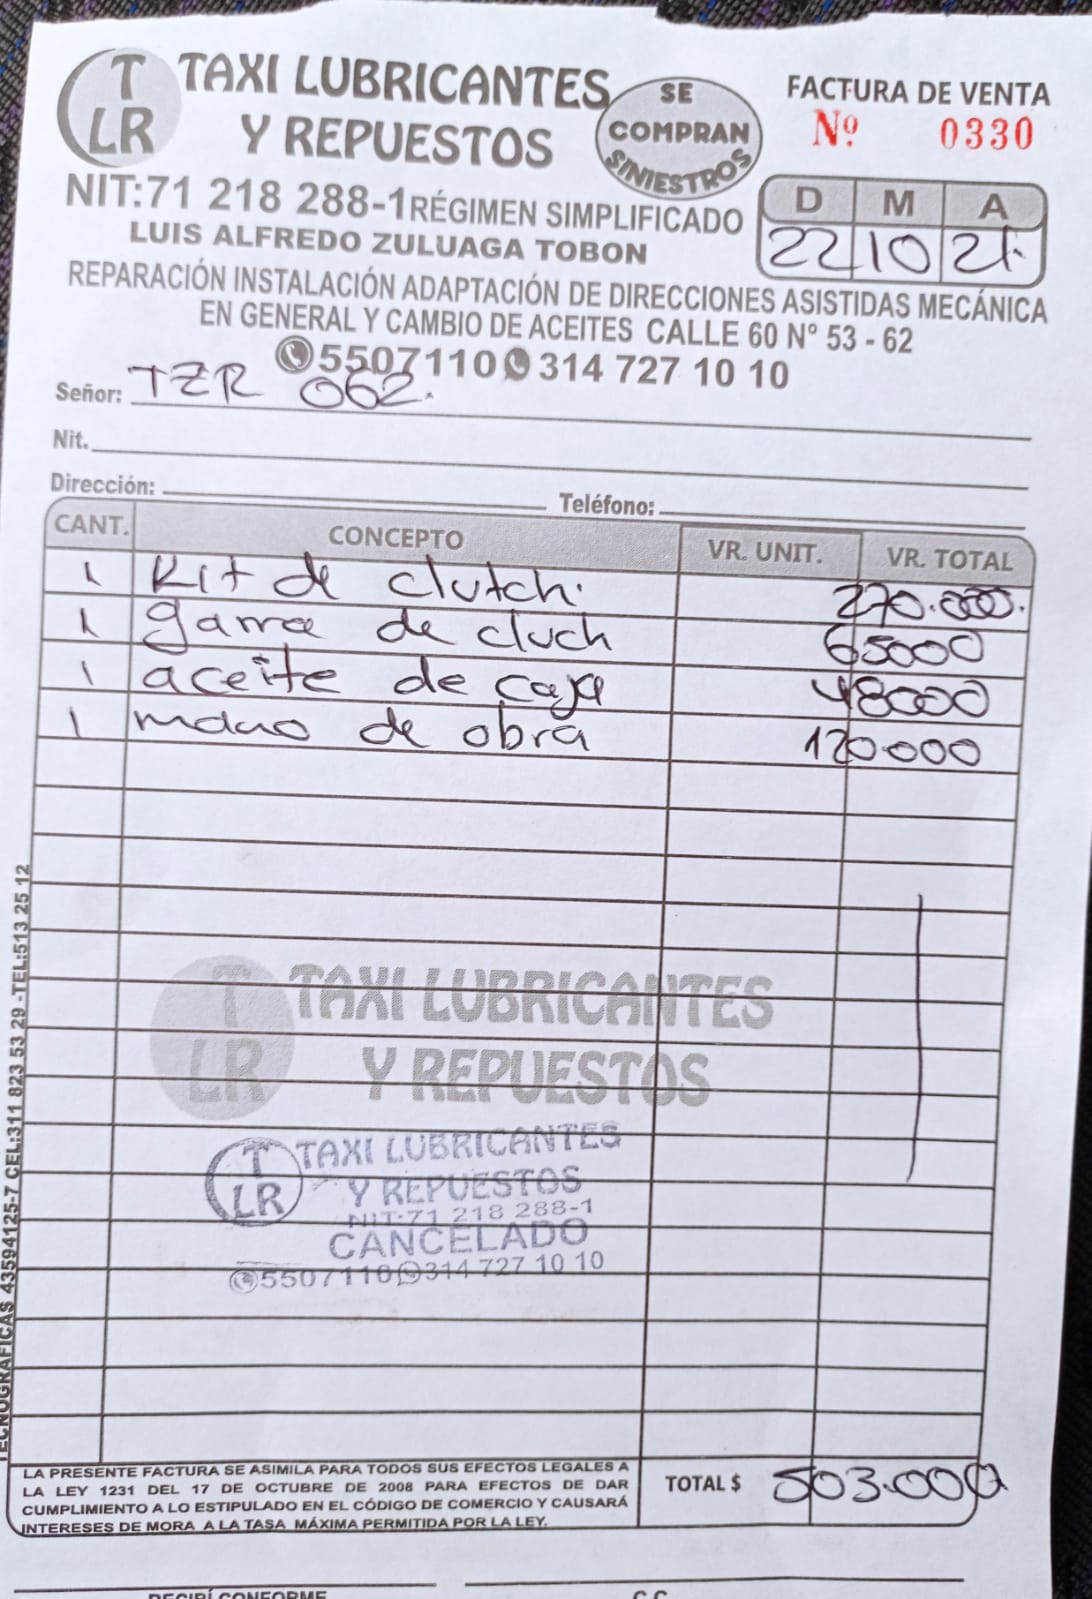 T LR
TAXI LUBRICANTES
Y REPUESTOS
SE COMPRAN SINIESTROS
FACTURA DE VENTA
Nº 0330
NIT:71 218 288-1 RÉGIMEN SIMPLIFICADO
D M A
22 10 21.
LUIS ALFREDO ZULUAGA TOBON
REPARACIÓN INSTALACIÓN ADAPTACIÓN DE DIRECCIONES ASISTIDAS MECÁNICA
EN GENERAL Y CAMBIO DE ACEITES CALLE 60 N° 53 - 62
5507110 314 727 10 10
Señor: TZR 062.
Nit.
Dirección: Teléfono:
CANT. CONCEPTO VR. UNIT. VR. TOTAL
1 Kit de clutch. 270.000.
1 garra de cluch 65000
1 aceite de caja 48000
1 mano de obra 120.000
TAXI LUBRICANTES
T LR
Y REPUESTOS
TAXI LUBRICANTES
T LR
Y REPUESTOS
NIT:71 218 288-1
CANCELADO
5507110 314 727 10 10
TECNOGRAFICAS 43594125-7 CEL:311 823 53 29 -TEL:513 25 12
LA PRESENTE FACTURA SE ASIMILA PARA TODOS SUS EFECTOS LEGALES A
LA LEY 1231 DEL 17 DE OCTUBRE DE 2008 PARA EFECTOS DE DAR
CUMPLIMIENTO A LO ESTIPULADO EN EL CÓDIGO DE COMERCIO Y CAUSARÁ
INTERESES DE MORA A LA TASA MÁXIMA PERMITIDA POR LA LEY.
TOTAL $ 503.000
RECIBÍ CONFORME C.C.